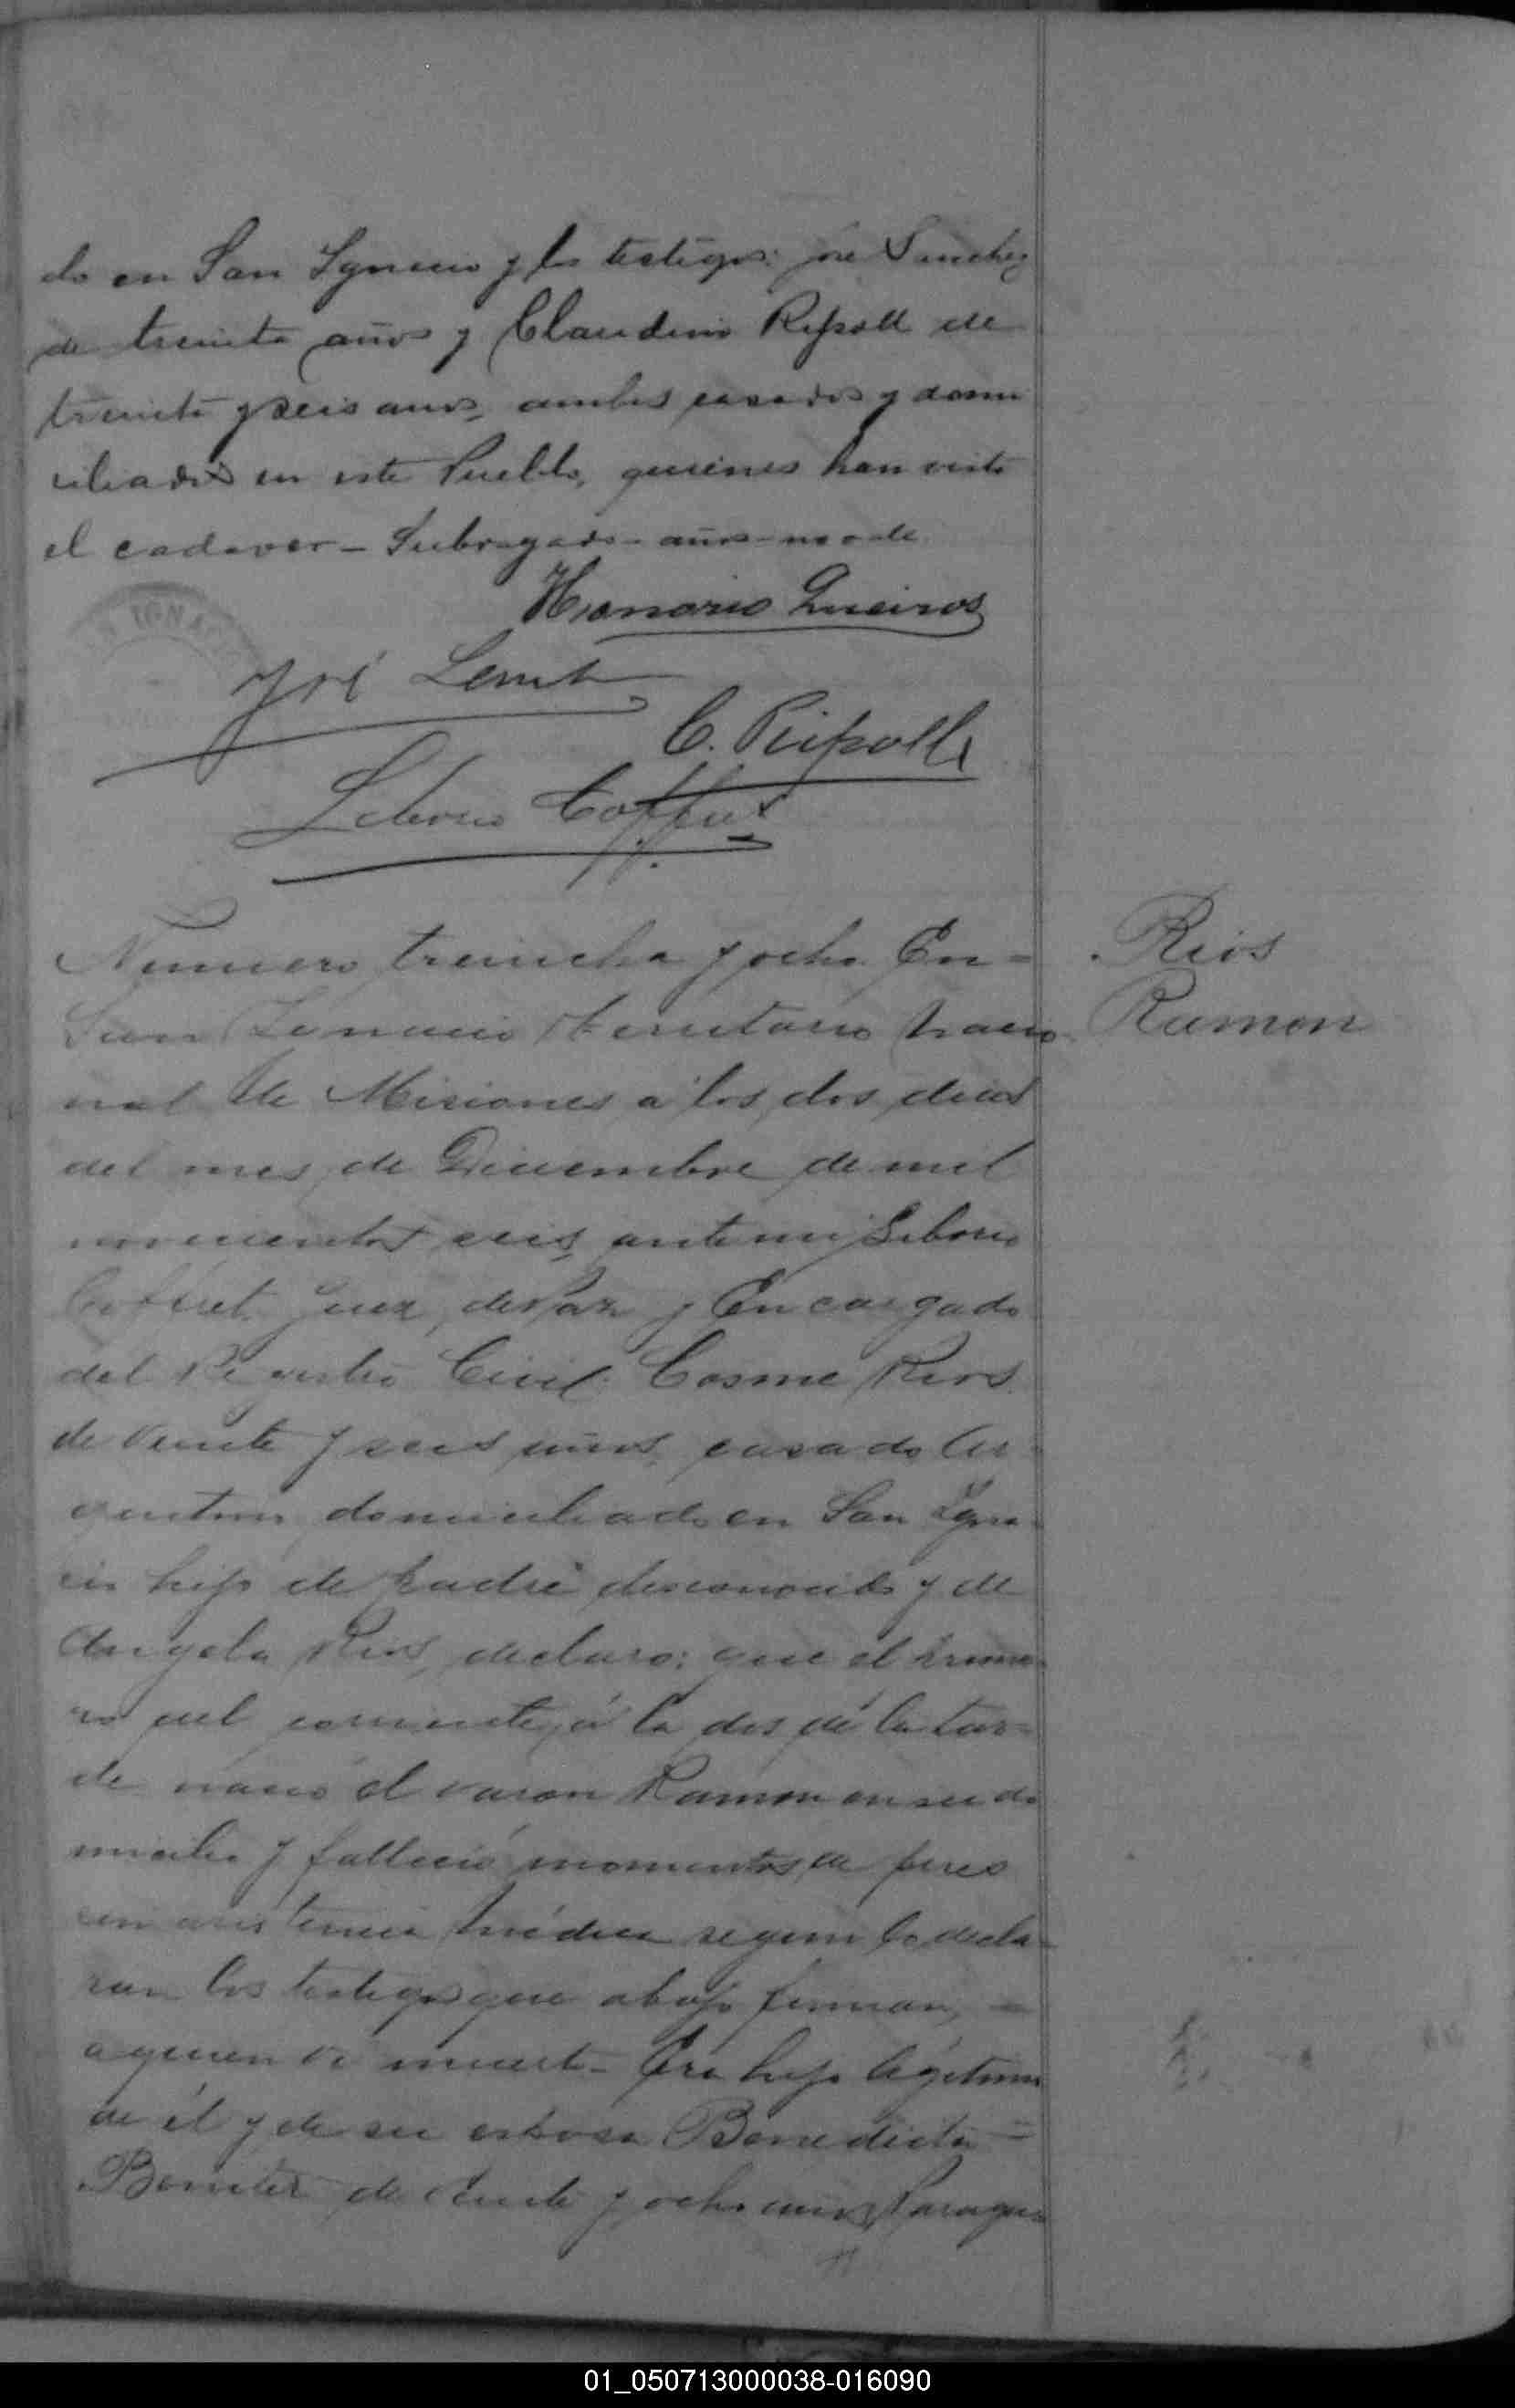 do en San Ygnacio y los testigos: José Sanchez
de treinta años y Claudino Ripoll de
treinta y seis años, ambos casados y domi
ciliados en este Pueblo, quienes han visto
el cadaver - Subrayado - años - no vale.
Honorio Queiros
IGNACIO
José
C. Ripoll
Liborio Coffret
Numero treincha y ocho. En =
San Ignacio Territorio Nacio
nal de Misiones a los dos dias
del mes de Diciembre de mil
novecientos seis, ante mi Liborio
Coffret Juez de Paz y Encargado
del Registro Civil: Cosme Rios.
de veinte y seis años, casado Ar-
gentino, domiciliado en San Ygna-
cio hijo de padre desconocido y de
Angela Rios, declaro: que el prime-
ro del corriente, á la dos de la tar=
de nació el varon Ramon en su do
micilio y falleció momentos de pues
sin asistencia médica segun lo decla-
ran los testigos que abajo firman, =
a quien vi muerto. Era hijo legitimo
de él y de su esposa Benedicta =
Benitez de veinte y ocho años, Paragua
Rios
Ramon
01_050713000038-016090